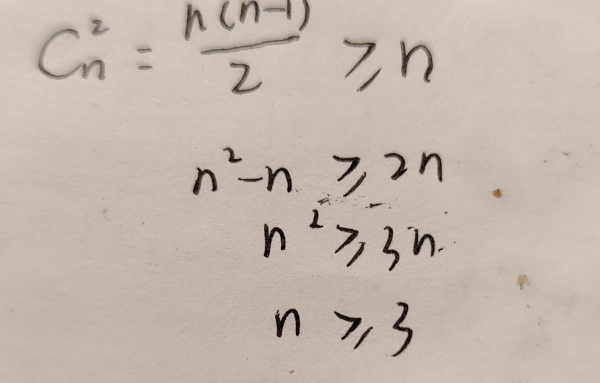 Cₙ² = n(n-1)/2 ⩾ n
n² - n ⩾ 2n
n² ⩾ 3n
n ⩾ 3